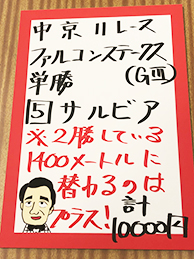 中京11レース
ファルコンステークス
(GⅢ)
単勝
5 サルビア
※2勝している
1400メートルに
替わるのは
プラス!
計
10000円